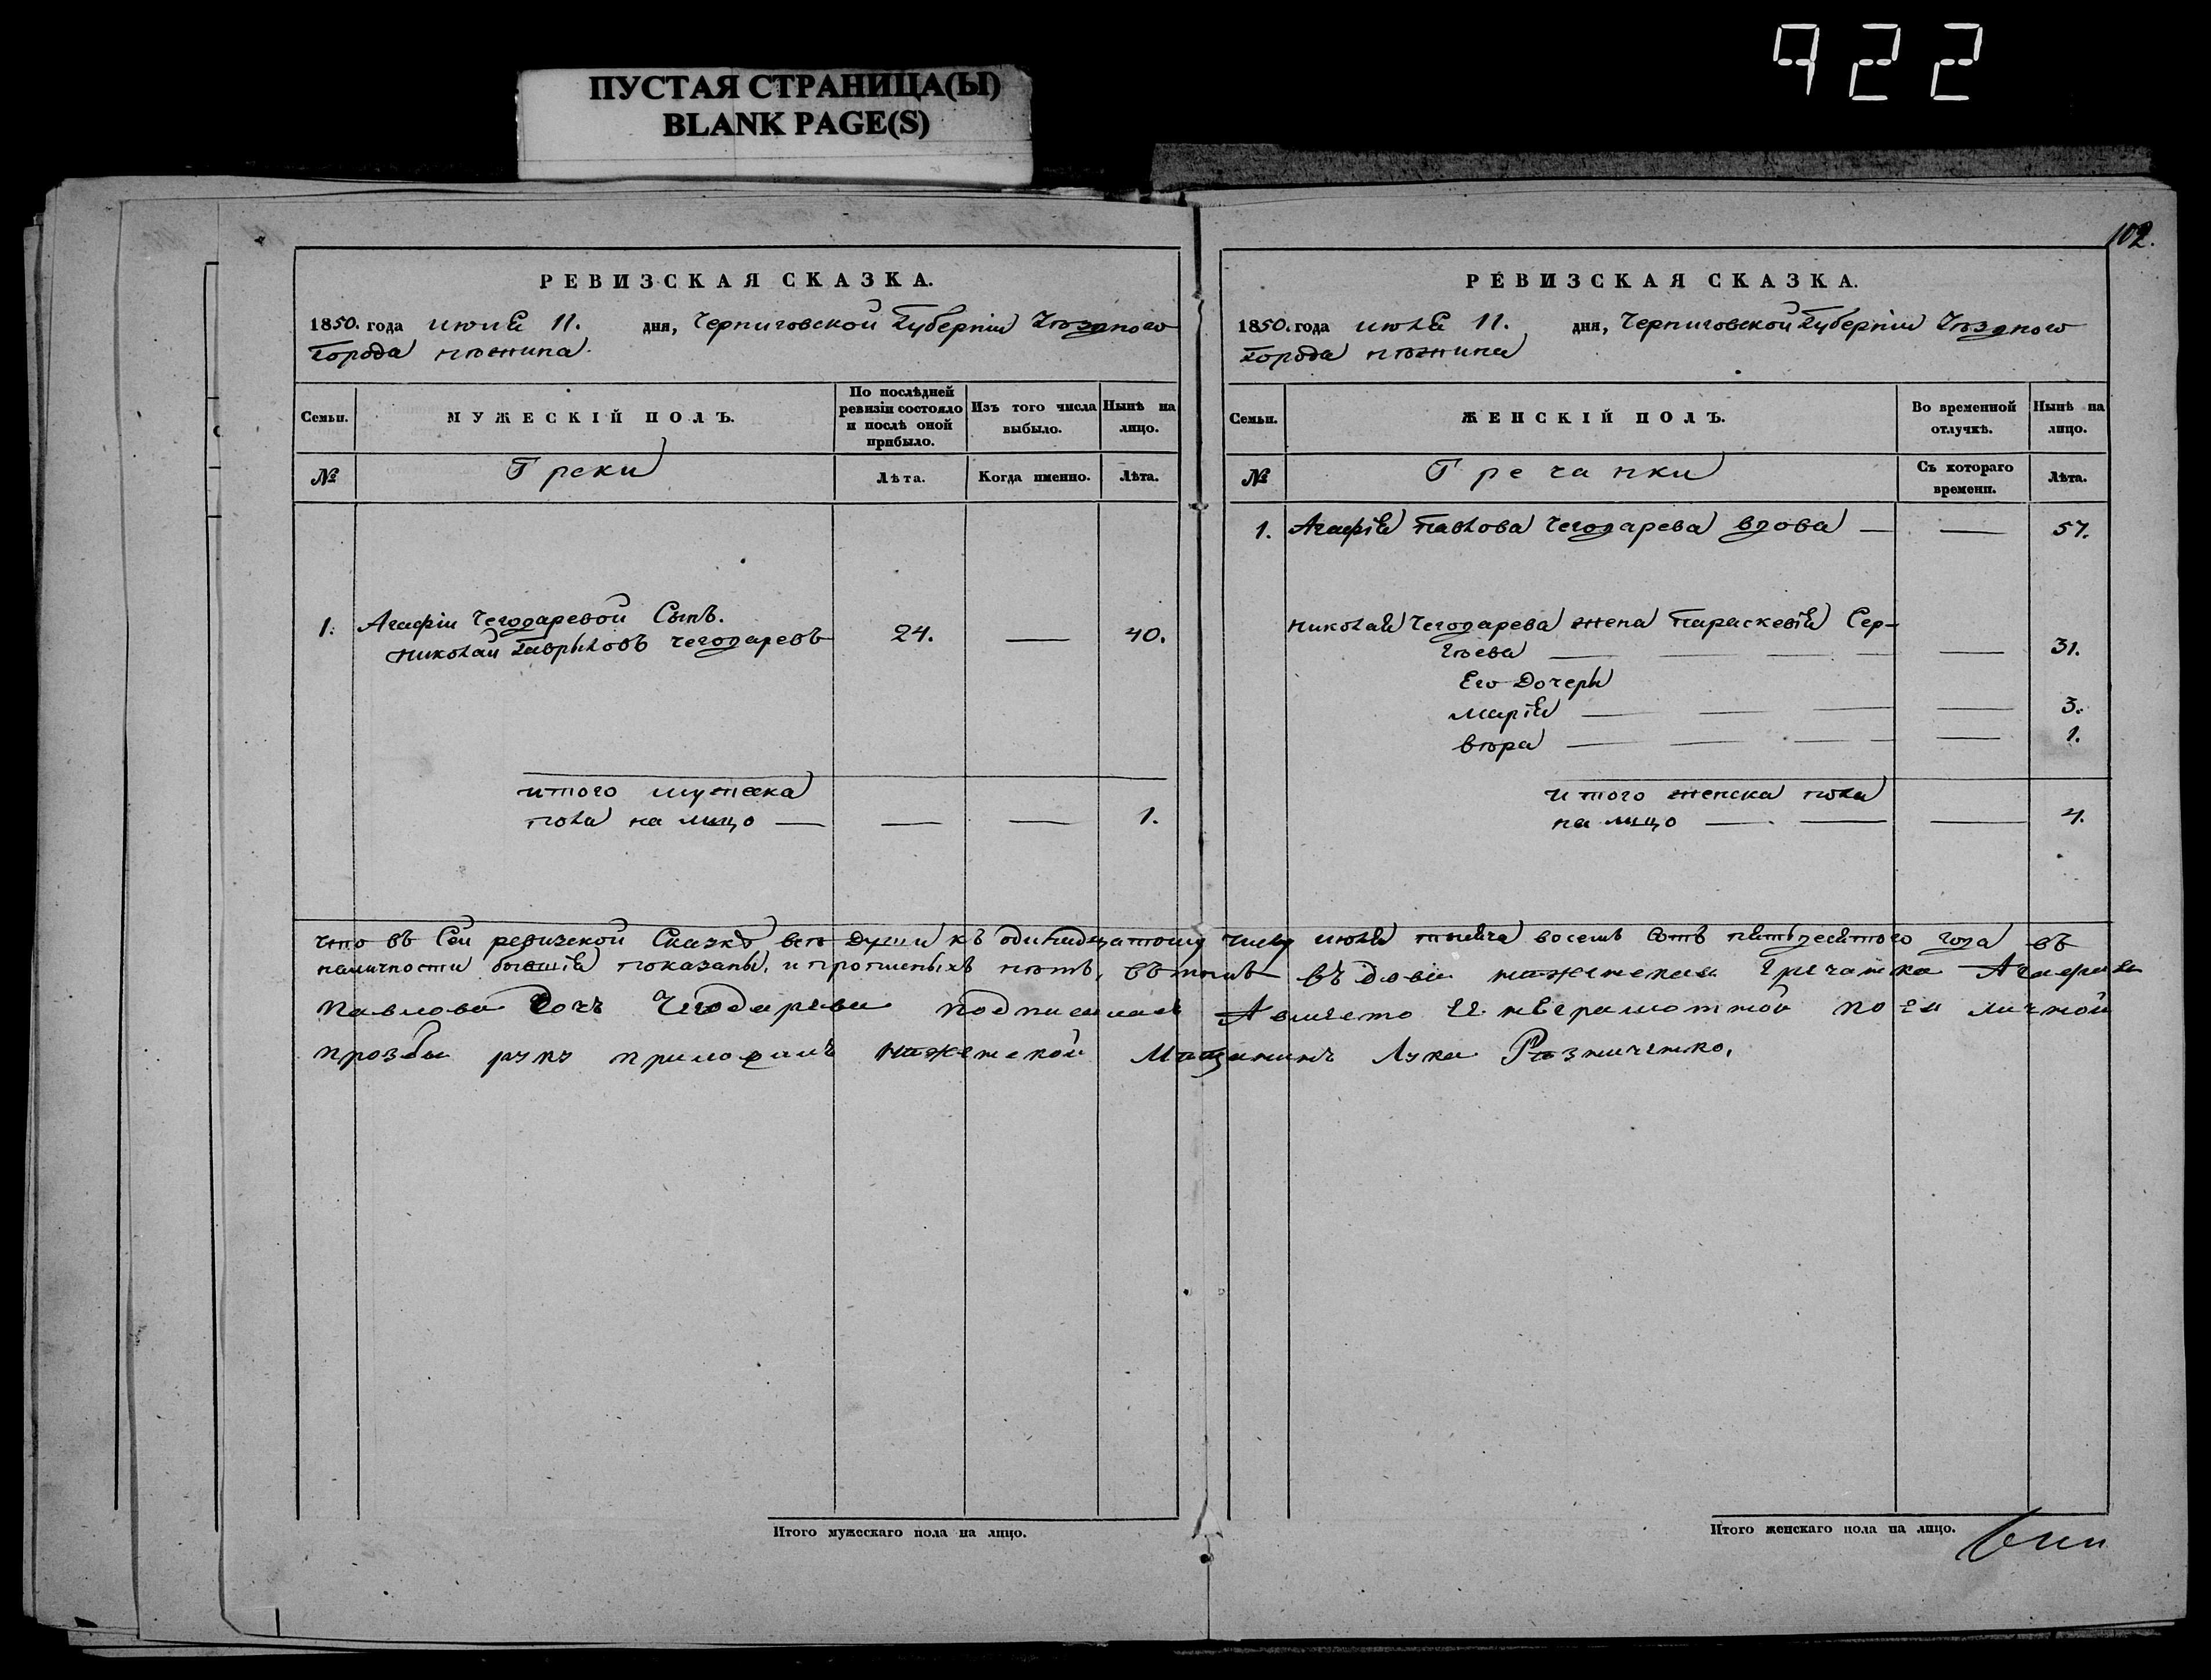 922
ПУСТАЯ СТРАНИЦА(Ы)
BLANK PAGE(S)
РЕВИЗСКАЯ СКАЗКА.
1850. года июля 11. дня, Черниговской Губерніи Уѣзднаго
Города нѣжина.
Семьи.
МУЖЕСКІЙ ПОЛЪ.
По послѣдней ревизіи состояло и послѣ оной прибыло.
Изъ того числа выбыло.
Нынѣ на лицо.
№
Греки
Лѣта.
Когда именно.
Лѣта.
1. Агафіи Чегодаревой Сынъ.
Николай Гавриловъ Чегодаревъ 24. — 40.
итого мужеска
пола на лицо — — — 1.
102.
РЕВИЗСКАЯ СКАЗКА.
1850. года июля 11. дня, Черниговской Губерніи Уѣзднаго
Города нѣжина
Семьи.
ЖЕНСКІЙ ПОЛЪ.
Во временной отлучкѣ.
Нынѣ на лицо.
№
Гречанки
Съ котораго времени.
Лѣта.
1. Агафія Павлова Чегодарева вдова — — 57.
Николая Чегодарева жена Параскевія Сер-
гѣева — — — — — 31.
Его Дочери
Марія — — — — 3.
вѣра — — — — — 1.
итого женска пола
на лицо — — — 4.
что въ Сей ревизской Сказкѣ всѣ Души къ одинадцатому числу июля тысяча восемь сотъ пятьдесятого года въ
наличности бывшія показаны, и прописныхъ нѣтъ, въ томъ въдова нѣженская Гречанка Агафия
Павлова Дочъ Чегодарева подписалась А вместо Ее неграмотной по ея личной
прозбы руку приложилъ нѣженской Мѣщанинъ Лука Рѣзниченко.
Итого мужескаго пола на лицо.
Итого женскаго пола на лицо.